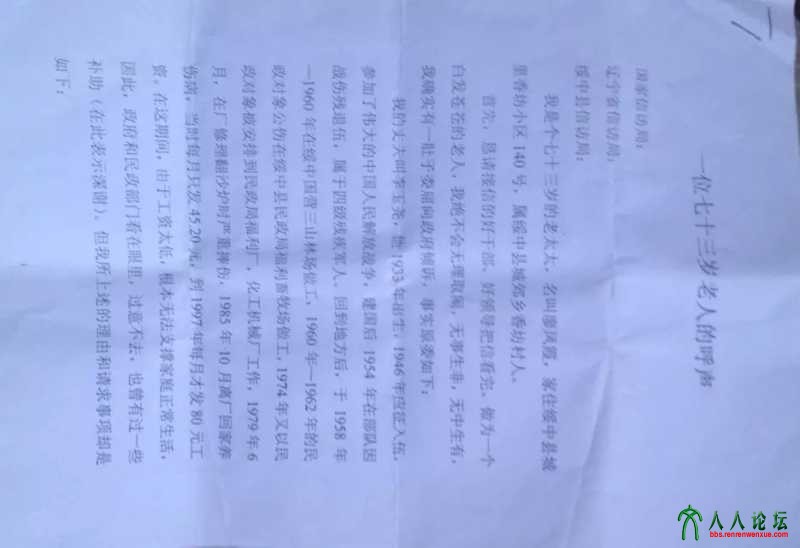 一位七十三岁老人的呼声
国家信访局：
辽宁省信访局：
绥中县信访局：
我是个七十三岁的老太太，名叫廖凤霞，家住绥中县城
里香坊小区 140 号，属绥中县城郊乡香坊村人。
首先，恳请接信的好干部、好领导把信看完。做为一个
白发苍苍的老人，我绝不会无理取闹，无事生非，无中生有，
我确实有一肚子委屈向政府倾诉，事实原委如下：
我的丈夫叫李玉尧，他 1933 年出生，1946 年应征入伍，
参加了伟大的中国人民解放战争，建国后 1954 年在部队因
战伤残退伍，属于四级残疾军人。回到地方后，于 1958 年
—1960 年在绥中国营三山林场做工，1960 年—1962 年的民
政对象公伤在绥中县民政局福利畜牧场做工，1974 年又以民
政对象被安排到民政局福利厂，化工机械厂工作，1979 年 6
月，在厂修理翻沙炉时严重摔伤，1985 年 10 月离厂回家养
伤病，当时每月只发 45.20 元，到 1997 年每月才发 80 元工
资。在这期间，由于工资太低，根本无法支撑家庭正常生活，
因此，政府和民政部门看在眼里，过意不去，也曾有过一些
补助（在此表示深谢），但我所上述的理由和请求事项却是
如下：
人人论坛
bbs.renrenwenxue.com